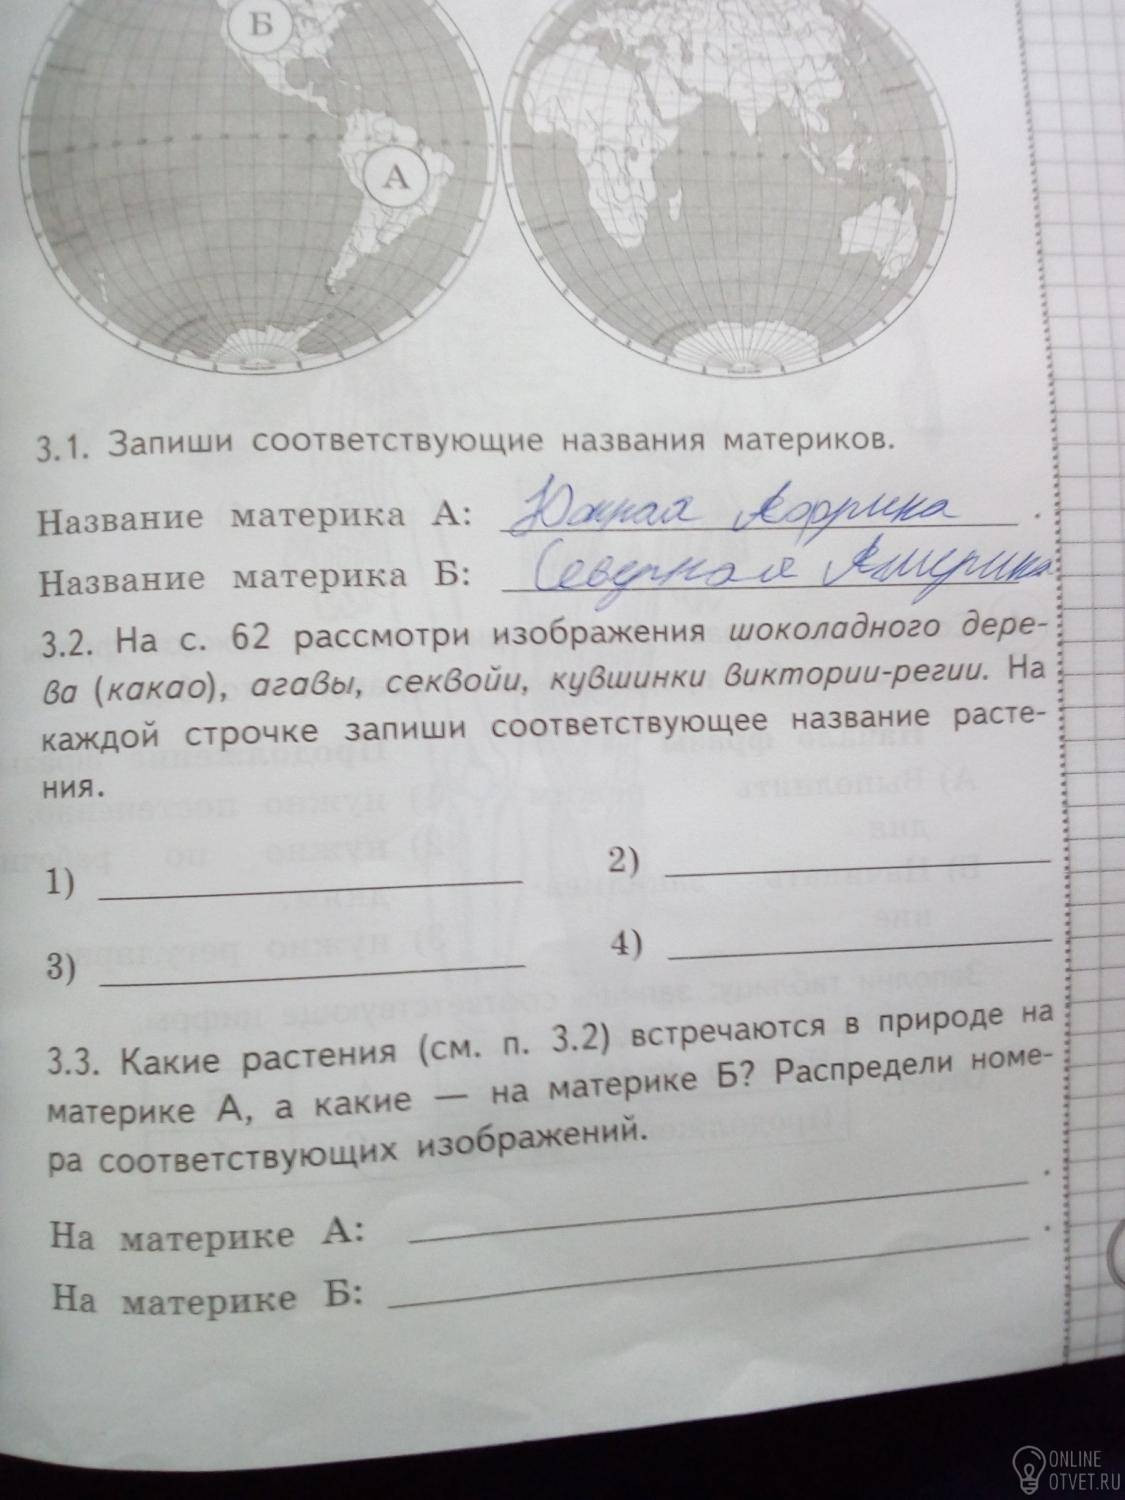 Б
А
3.1. Запиши соответствующие названия материков.
Название материка А: Южная Африка .
Название материка Б: Северная Америка
3.2. На с. 62 рассмотри изображения шоколадного дере-
ва (какао), агавы, секвойи, кувшинки виктории-регии. На
каждой строчке запиши соответствующее название расте-
ния.
1)
2)
3)
4)
3.3. Какие растения (см. п. 3.2) встречаются в природе на
материке А, а какие — на материке Б? Распредели номе-
ра соответствующих изображений.
На материке А: .
На материке Б: .
ONLINE
OTVET.RU